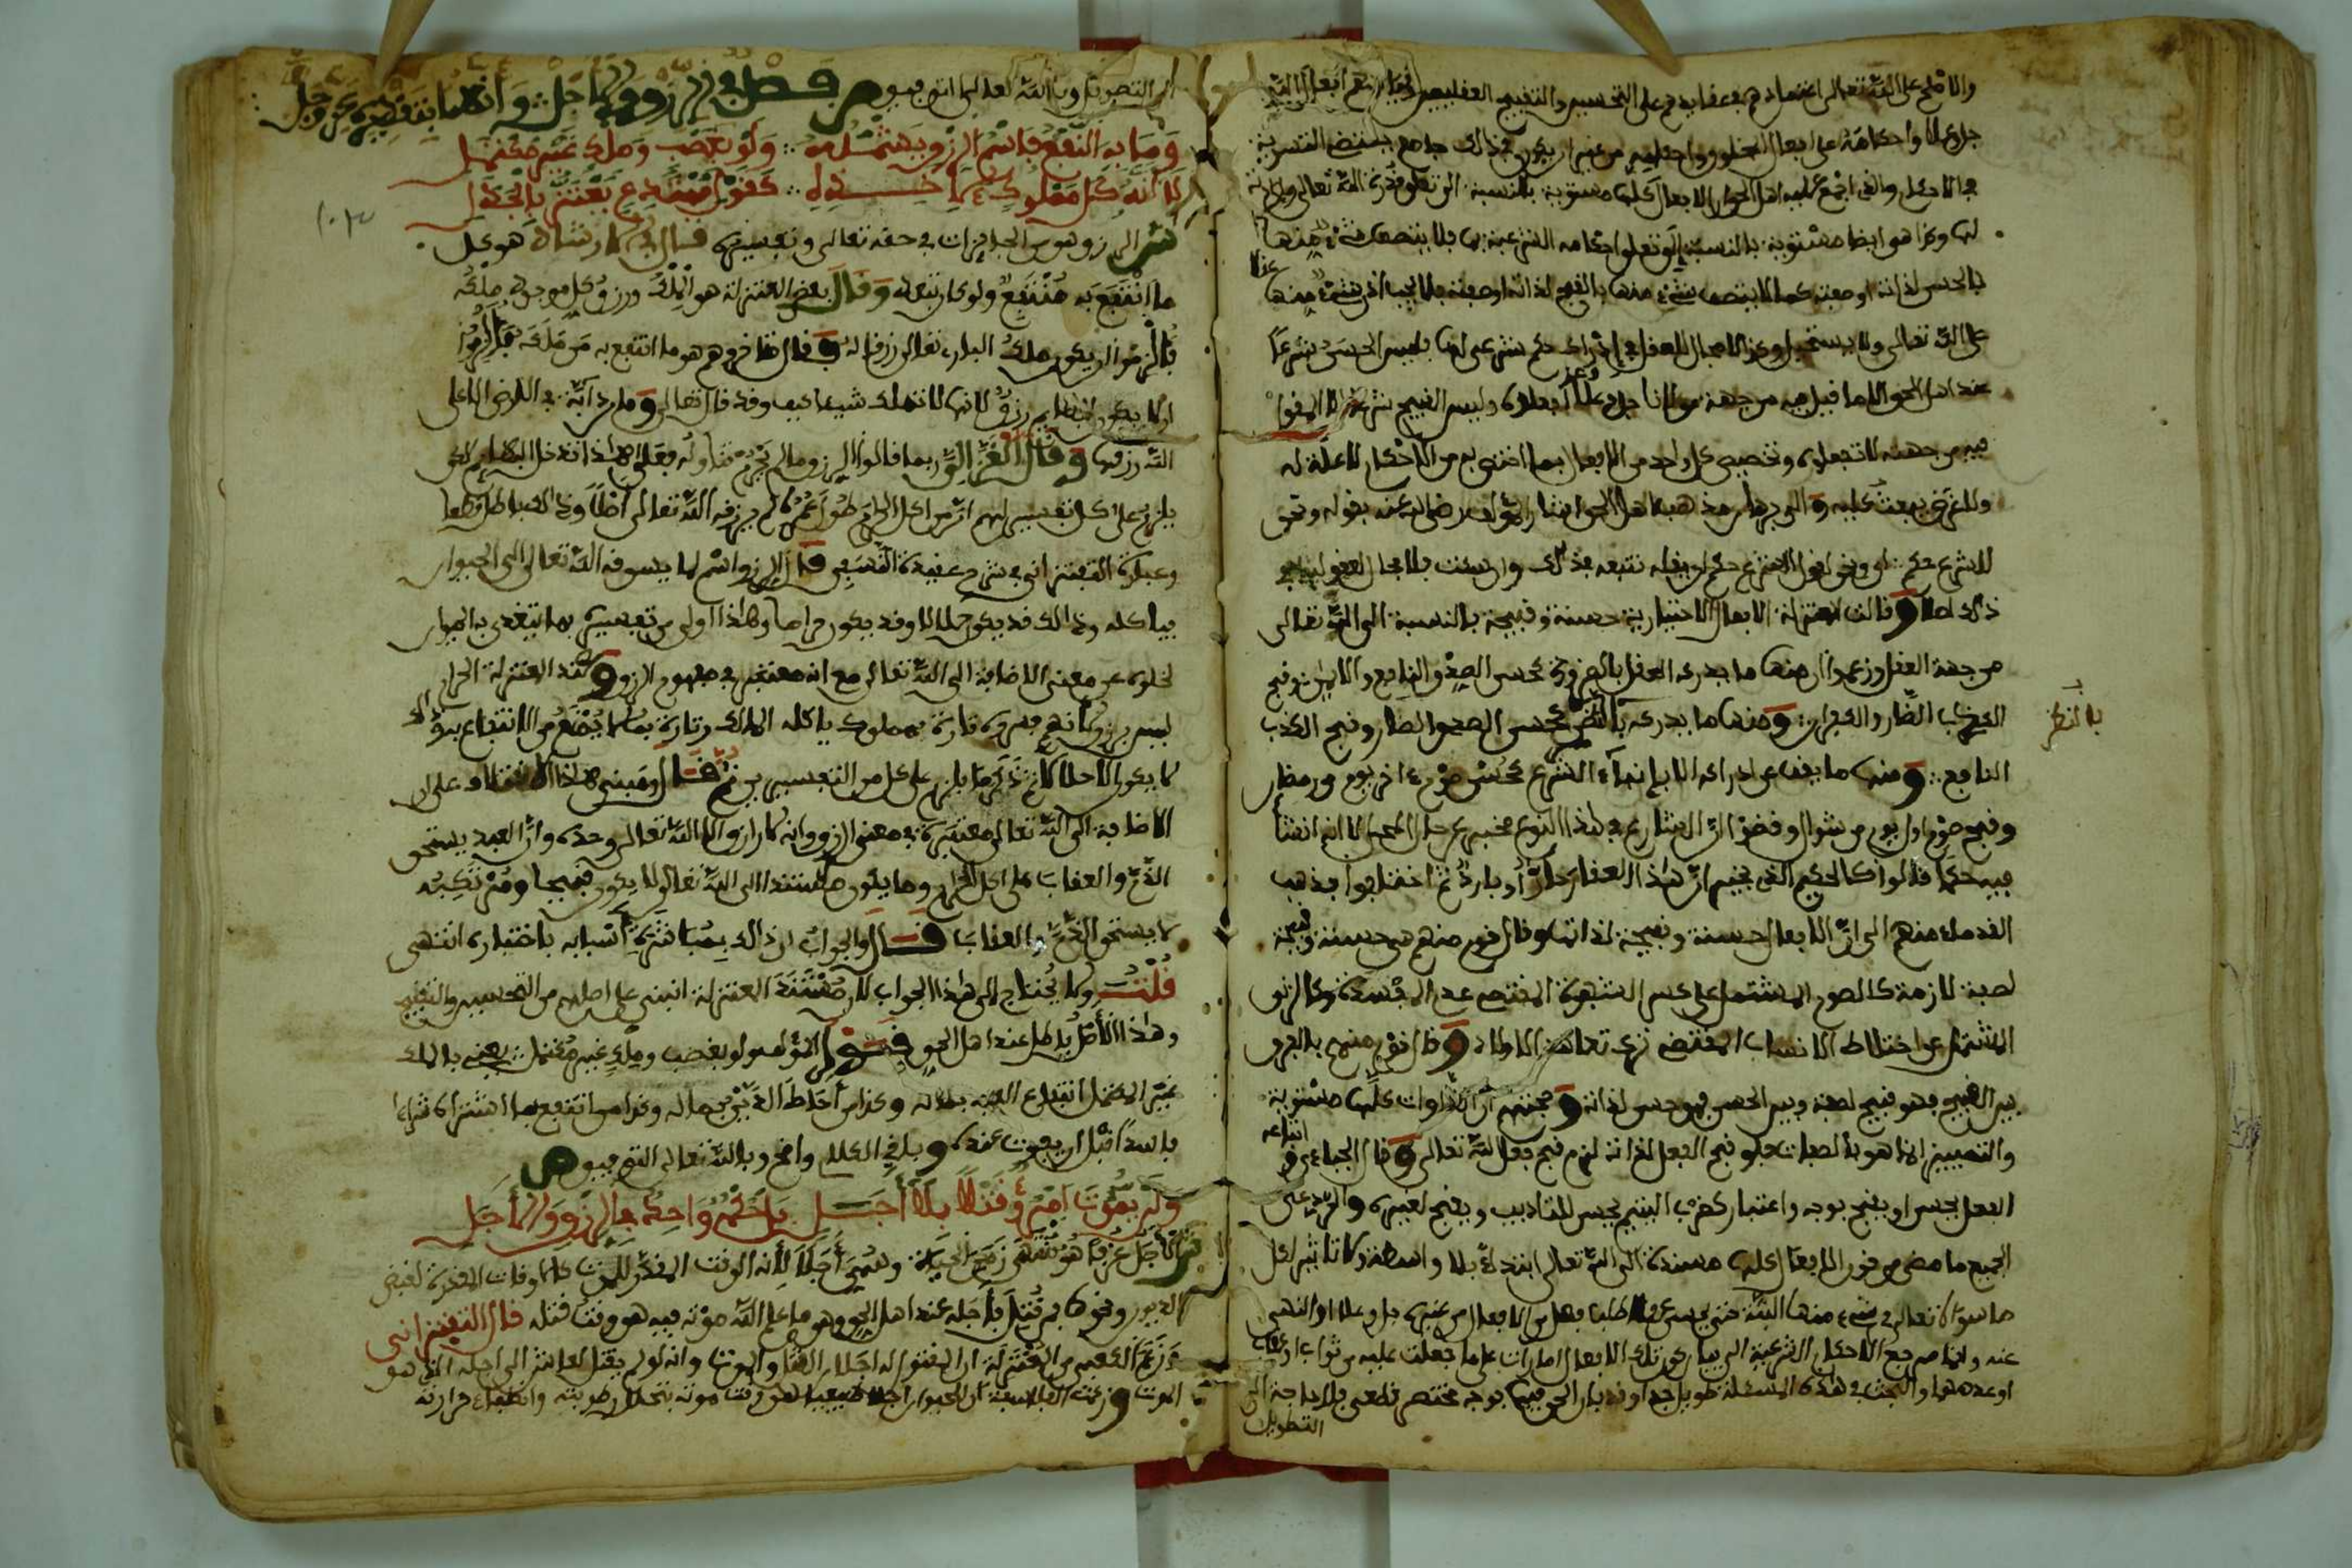 والاصلح على الله تعالى اعتمادهم في عقايدهم على التحسين والتقبيح العقليين وقياسهم افعال الله
جل وعلا واحكامه على افعال المخلوق واحكامهم من غير ان يكون في ذلك جامع يقتضي التسوية
في الاحكام والذي اجمع عليه اهل الحق ان الافعال كلها مستوية بالنسبة الى تعلق قدرة الله تعالى وارادته
لها وكذا هو ايضا مستوية بالنسبة الى تعلق احكامه الشرعية بها فلا يتصف شيء منها
بالحسن لذاته او صفته كما لا يتصف شيء منها بالقبح لذاته او صفته فلا يجب اذن شيء منها
عقلا
على الله تعالى ولا يستحيل وكذا لا مجال للعقل في ادراك حكم شرعي لها فليس الحسن شرعا
عند اهل الحق الا ما قيل فيه من جهة مولانا جل وعز افعلوه وليس القبيح شرعا الا المقول
فيه من جهته لا تفعلوه وتخصيص كل واحد من الافعال بما اختص به من الاحكام لا علة له
ولا غرض يبعث عليه والى جريان مذهب اهل الحق اشار المؤلف رضي الله عنه بقوله ونحن
للشرع حكم اي ونحن اهل الشرع حكم الله بفعله نتبعه في ذلك وان شئت فلا مجال للعقل في
ذلك اصلا وقالت المعتزلة الافعال الاختيارية حسنة وقبيحة بالنسبة الى الله تعالى
من جهة العقل وزعموا ان منها ما يدركه العقل بالضرورة كحسن الصدق النافع والايمان وقبح
الكذب الضار والكفران ومنها ما يدركه بالنظر كحسن الصدق الضار وقبح الكذب
بالنظر
النافع ومنها ما يقف عن ادراكه الا بانباء الشرع كحسن صوم اخر يوم من رمضان
وقبح صوم اول يوم من شوال وقضوا ان الشارع في هذا النوع مخبر عن حال المحل لا انه انشأ
فيه حكما قالوا كالحكيم الذي يخبر ان هذا العقار حار او بارد ثم اختلفوا فذهب
القدماء منهم الى ان الافعال حسنة وقبيحة لذاتها وقال قوم منهم هي حسنة وقبيحة
لصفة لازمة كالصوم المشتمل على كسر الشهوة المقتضي عدم المفسدة وكالزنى
المشتمل على اختلاط الانساب المقتضي ترك تعاهد الاولاد وقال قوم منهم بالفرق
بين القبيح فهو قبيح لصفة وبين الحسن فهو حسن لذاته وحجتهم ان الذوات كلها مستوية
والتمييز انما هو بالصفات فلو قبح الفعل لذاته لزم قبح فعل الله تعالى وقال الجباءي و
اتباعه
الفعل يحسن او يقبح بوجه واعتبار كضرب اليتيم يحسن للتاديب ويقبح لغيره والرد على
الجميع ما مضى من قوة الافعال كلها مسندة الى الله تعالى ابتداء بلا واسطة ولا تاثير لكل
ما سواه تعالى في شيء منها البتة حتى يحسن عقلا طلب فعل من الافعال من غيره جل وعلا او النهي
عنه وانما مرجع الاحكام الشرعية الى بيان كون تلك الافعال امارات على ما جعلت عليه من ثواب او عقاب
او عدمهما والبحث في هذه المسئلة طويل جدا وقد بان الحق فيها بوجه مختصر قطعي فلا حاجة الى
التطويل
الى التطويل وبالله تعالى التوفيق ص فصل في الرزق والاجل وانهما بتقديره عز وجل
وما به النفع فاسم الرزق يشمله ولو بغصب وملك غير محتمل
لا انه كل مملوك لاخذه كقول مبتدع يعتز بالجدل
ش الرزق وهو من الجايزات في حقه تعالى وتفسيره قال ابن ارشاد هو كل
ما انتفع به منتفع ولو كان بتعد وقال بعض المعتزلة هو الملك ورزق كل موجود ملكه
فالزموا ان يكون ملك الباري تعالى رزقا له وقال متاخروهم هو ما انتفع به من ملكه فالزموا
ان لا يكون للبهايم رزق لانها لا تملك شيئا كيف وقد قال تعالى وما من دابة في الارض الا على
الله رزقها وقال الغزالي ربما قالوا الرزق ما لم يحرم تناوله فعلى هذا تدخل البهايم لكن
يلزم على كل تفسير لهم ان من اكل الحرام طول عمره لم يرزقه الله تعالى اصلا وذلك باطل قطعا
وعبارة التفتزاني في شرح عقيدة النسفي قال الرزق اسم لما يسوقه الله تعالى الى الحيوان
فياكله وذلك قد يكون حلالا وقد يكون حراما وهذا اولى من تفسيره بما يتغذى به الحيوان
لخلوه عن معنى الاضافة الى الله تعالى مع انه معتبر في مفهوم الرزق وعند المعتزلة الحرام
ليس برزق لانهم فسروه تارة بمملوك ياكله المالك وتارة بما لا يمنع من الانتفاع به وذلك
لا يكون الا حلالا ثم ذكر ما يلزم على كل من التفسيرين ثم قال ومبنى هذا الاختلاف على ان
الاضافة الى الله تعالى معتبرة في معنى الرزق وانه لا رازق الا الله تعالى وحده وان العبد يستحق
الذم والعقاب على اكل الحرام وما يكون مستندا الى الله تعالى لا يكون قبيحا ومرتكبه
لا يستحق الذم والعقاب قال والجواب ان ذلك بمباشرة اسبابه باختياره انتهى
قلت ولا يحتاج الى هذا الجواب لان مستند المعتزلة انبنى على اصلهم من التحسين والتقبيح
وهذا الاصل باطل عند اهل الحق فقول المؤلف ولو بغصب وملك غير محتمل يعني بالملك
غير المحتمل انتفاع العبد بماله وكذا من احاط الدين بماله وكذا من انتفع بما اشتراه شراء
فاسدا قبل ان يفوت عنده وباقي الكلام واضح وبالله تعالى التوفيق ص
ولن يموت امرؤ قتلا بلا اجل بل حكم واحد في الرزق والاجل
ش الاجل عرفا هو منتهى زمن الحياة وسمي اجلا لانه الوقت المقدر للموت كالاوقات المقدرة لقبض
الديون ونحوها فمن قتل فاجله عند اهل الحق وهو ما علم الله موته فيه هو وقت قتله قال التفتزاني
وزعم الكعبي من المعتزلة ان المقتول له اجلان القتل والموت وانه لو لم يقتل لعاش الى اجله الذي هو
الموت وزعمت الفلاسفة ان للحيوان اجلا طبيعيا هو وقت موته بتحلل رطوبته وانطفاء حرارته